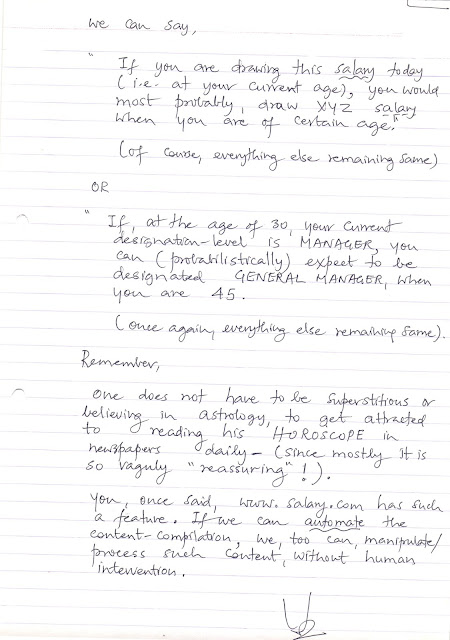 we can say,
" If you are drawing this salary today
(i.e. at your current age), you would
most probably, draw XYZ salary
when you are of certain age."
(of course, everything else remaining same)
OR
" If, at the age of 30, your current
designation-level is MANAGER, you
can (probabilistically) expect to be
designated GENERAL MANAGER, when
you are 45.
(once again, everything else remaining same).
Remember,
One does not have to be superstitious or
believing in astrology, to get attracted
to reading his HOROSCOPE in
newspapers daily - (since mostly it is
so vaguly "reassuring"!).
You, once said, www.salary.com has such
a feature. If we can automate the
content-compilation, we, too can, manipulate/
process such content, without human
intervention.